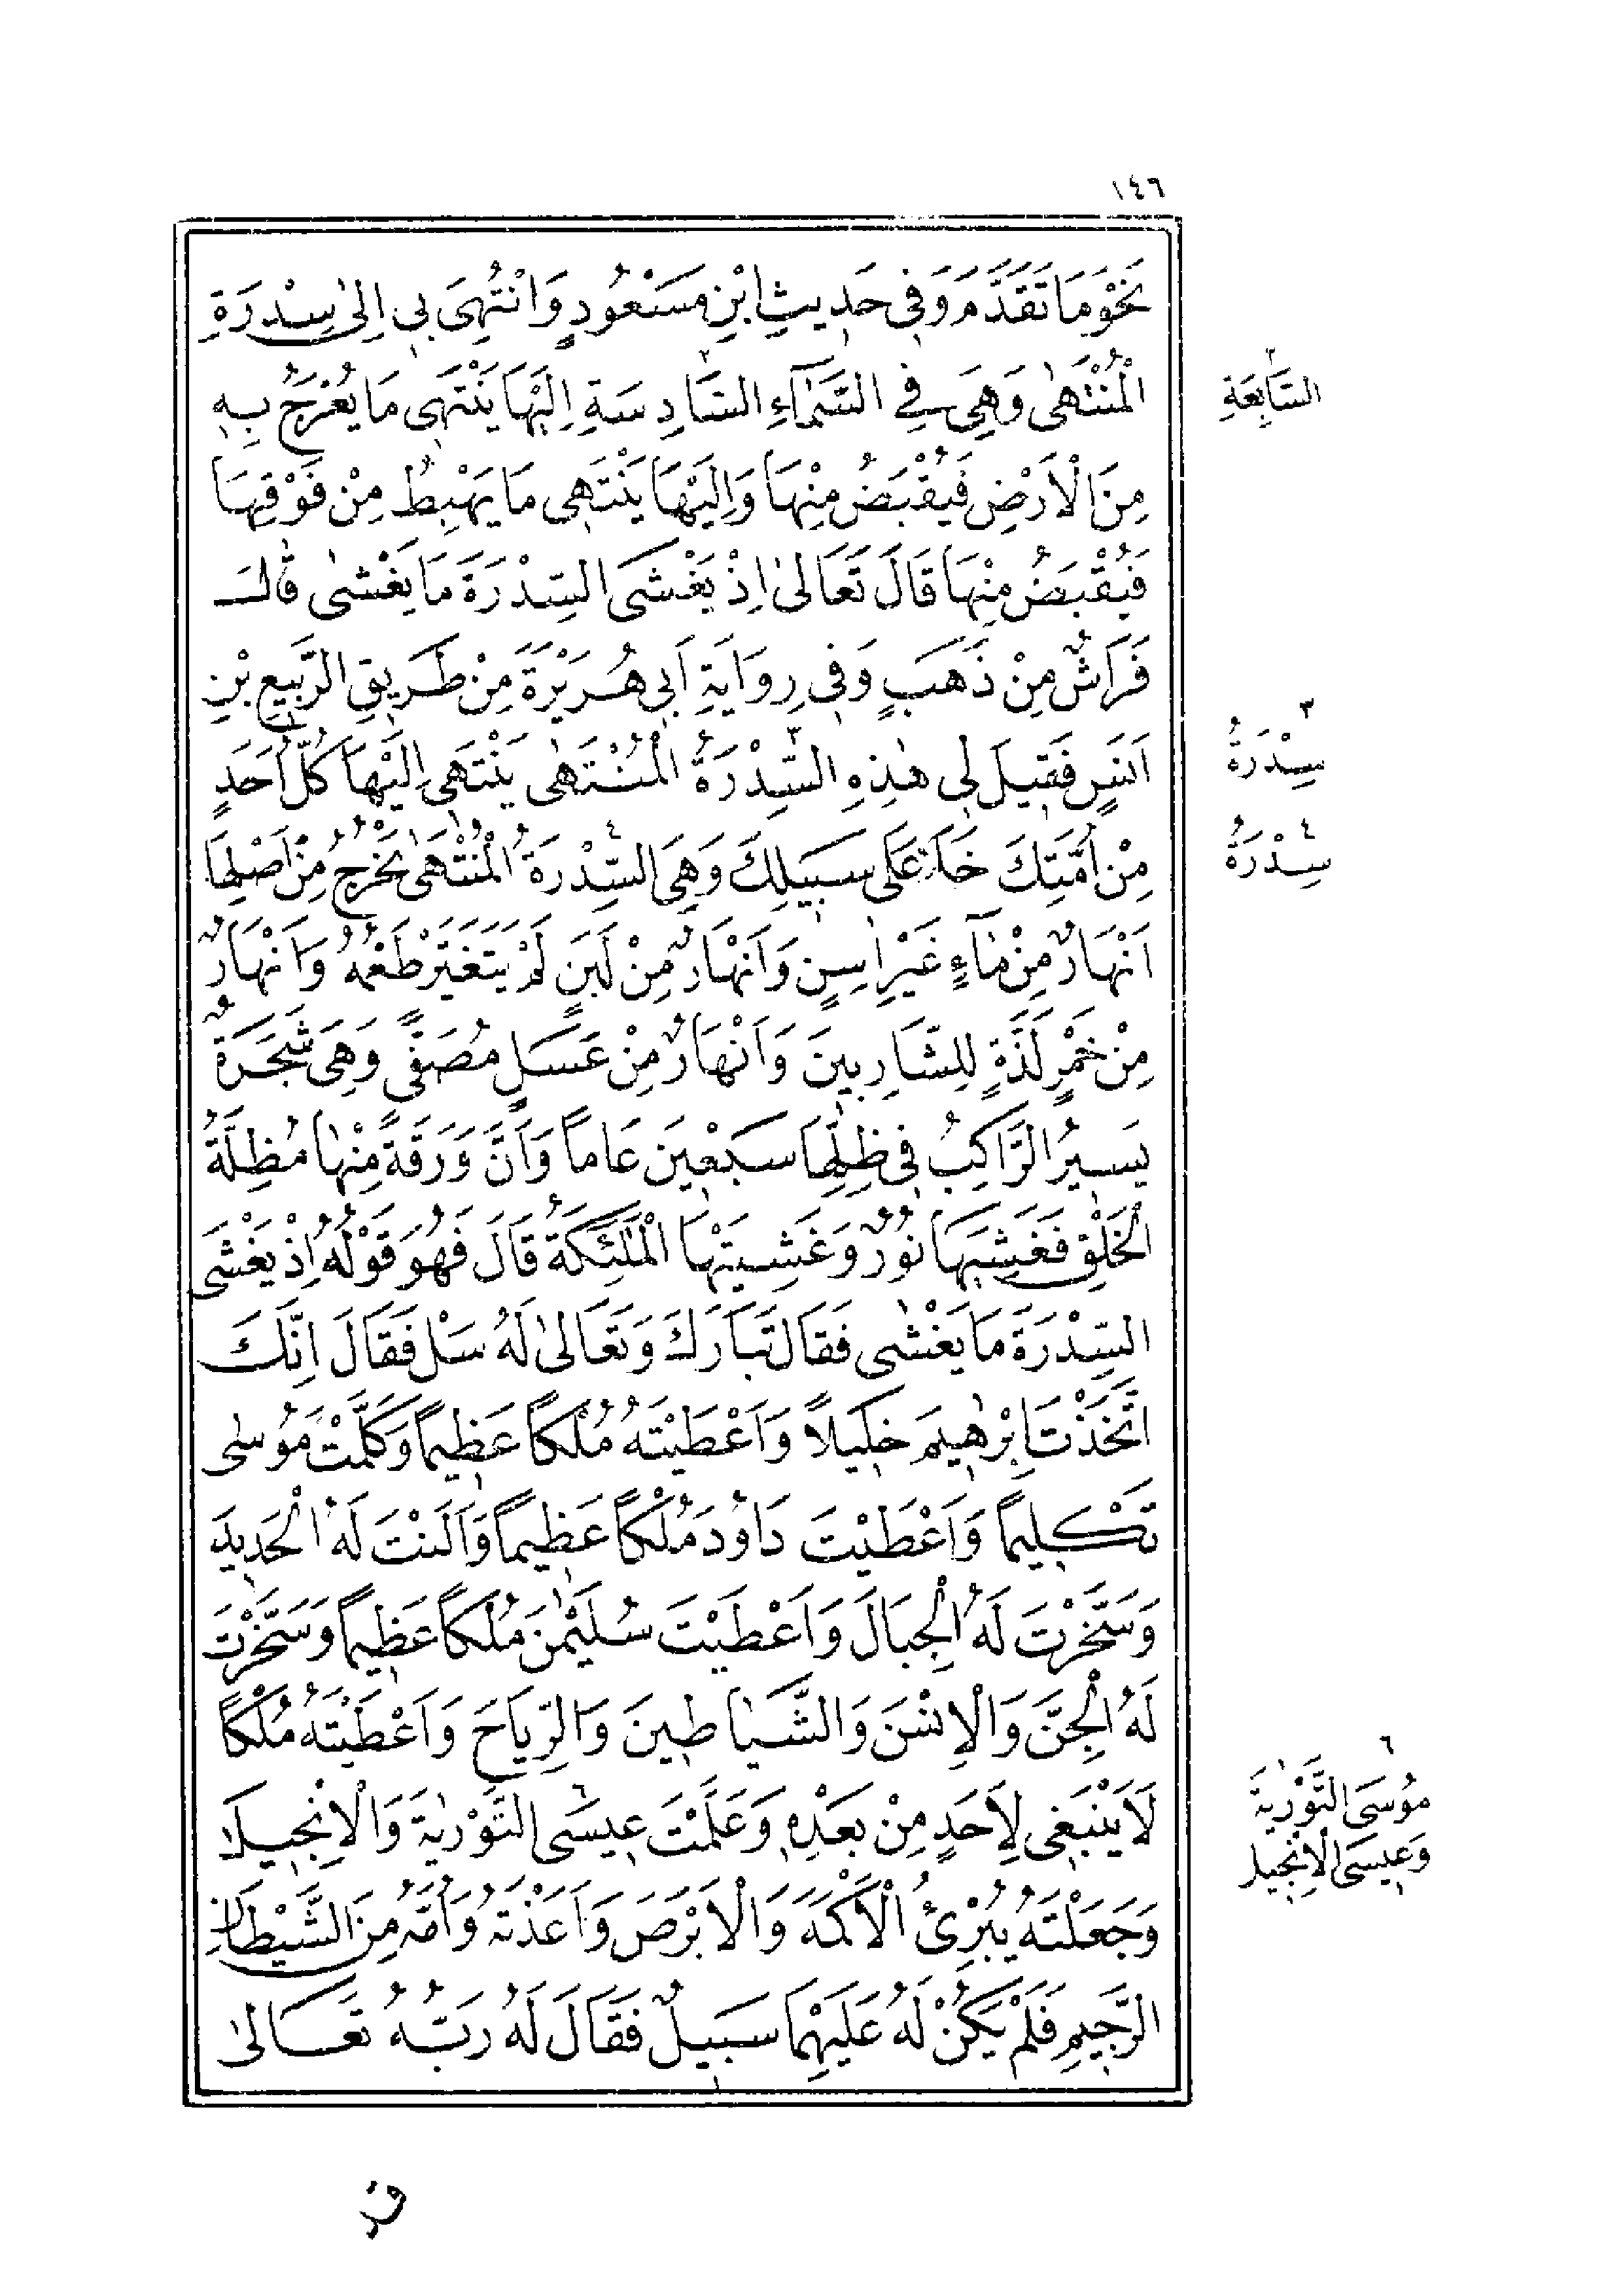 ١٤٦
نَحْوُ مَا تَقَدَّمَ وَفِي حَدِيثِ ابْنِ مَسْعُودٍ وَانْتُهِيَ بِي اِلىٰ سِدْرَةِ
الْمُنْتَهٰى وَهِيَ فِي السَّمَآءِ السَّادِسَةِ اِلَيْهَا يَنْتَهِى مَا يُعْرَجُ بِهِ
مِنَ الْاَرْضِ فَيُقْبَضُ مِنْهَا وَاِلَيْهَا يَنْتَهِى مَا يَهْبِطُ مِنْ فَوْقِهَا
فَيُقْبَضُ مِنْهَا قَالَ تَعَالىٰ اِذْ يَغْشَى السِّدْرَةَ مَا يَغْشٰى قَالَ
فَرَاشٌ مِنْ ذَهَبٍ وَفِي رِوَايَةِ اَبِي هُرَيْرَةَ مِنْ طَرِيقِ الرَّبِيعِ بْنِ
اَنَسٍ فَقِيلَ لِي هٰذِهِ السِّدْرَةُ الْمُنْتَهٰى يَنْتَهِى اِلَيْهَا كُلُّ اَحَدٍ
مِنْ اُمَّتِكَ خَلَا عَلَى سَبِيلِكَ وَهِيَ السِّدْرَةُ الْمُنْتَهٰى يَخْرُجُ مِنْ اَصْلِهَا
اَنْهَارٌ مِنْ مَآءٍ غَيْرِ اٰسِنٍ وَاَنْهَارٌ مِنْ لَبَنٍ لَمْ يَتَغَيَّرْ طَعْمُهُ وَاَنْهَارٌ
مِنْ خَمْرٍ لَذَّةٍ لِلشَّارِبِينَ وَاَنْهَارٌ مِنْ عَسَلٍ مُصَفًّى وَهِيَ شَجَرَةٌ
يَسِيرُ الرَّاكِبُ فِي ظِلِّهَا سَبْعِينَ عَاماً وَاَنَّ وَرَقَةً مِنْهَا مُظِلَّةُ
الْخَلْقِ فَغَشِيَهَا نُورٌ وَغَشِيَتْهَا الْمَلٰئِكَةُ قَالَ فَهُوَ قَوْلُهُ اِذْ يَغْشَى
السِّدْرَةَ مَا يَغْشٰى فَقَالَ تَبَارَكَ وَتَعَالىٰ لَهُ سَلْ فَقَالَ اِنَّكَ
اتَّخَذْتَ اِبْرٰهِيمَ خَلِيلاً وَاَعْطَيْتَهُ مُلْكاً عَظِيماً وَكَلَّمْتَ مُوسٰى
تَكْلِيماً وَاَعْطَيْتَ دَاوُدَ مُلْكاً عَظِيماً وَاَلَنْتَ لَهُ الْحَدِيدَ
وَسَخَّرْتَ لَهُ الْجِبَالَ وَاَعْطَيْتَ سُلَيْمٰنَ مُلْكاً عَظِيماً وَسَخَّرْتَ
لَهُ الْجِنَّ وَالْاِنْسَ وَالشَّيَاطِينَ وَالرِّيَاحَ وَاَعْطَيْتَهُ مُلْكاً
لَا يَنْبَغِى لِاَحَدٍ مِنْ بَعْدِهِ وَعَلَّمْتَ عِيسَى التَّوْرٰيةَ وَالْاِنْجِيلَ
وَجَعَلْتَهُ يُبْرِئُ الْاَكْمَهَ وَالْاَبْرَصَ وَاَعَذْتَهُ وَاُمَّهُ مِنَ الشَّيْطَانِ
الرَّجِيمِ فَلَمْ يَكُنْ لَهُ عَلَيْهِمَا سَبِيلٌ فَقَالَ لَهُ رَبُّهُ تَعَالىٰ
٢
السَّابِعَةِ
٣
سِدْرَةُ
٤
سِدْرَةُ
٦
مُوسَى التَّوْرٰيةَ
وَعِيسَى الْاِنْجِيلَ